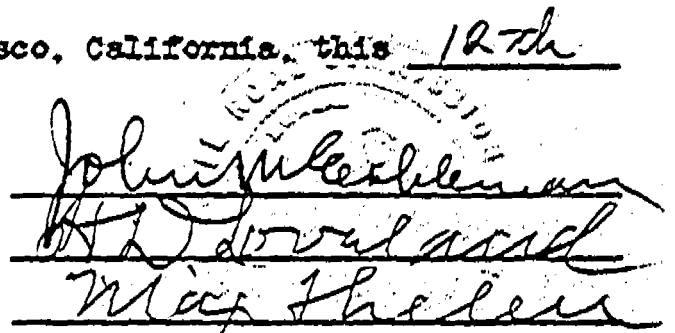 sco, California, this 12th
John M Eshleman
H D Loveland
Max Thelen